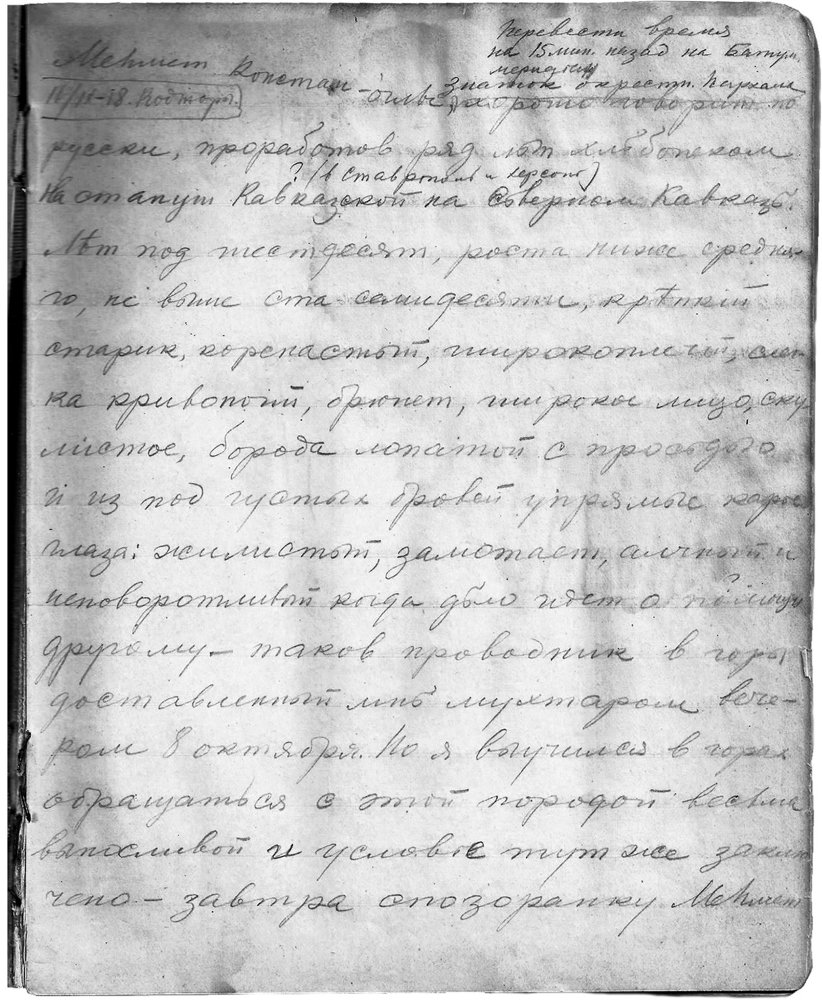 Перевести время
на 15 мин. назад на Батум.
меридиан
Мehмет Констан-оглы, знаток окрестн. Пархала
10/IX-18. Коджоры.
хорошо говорит по
русски, проработов ряд лѣт хлѣбопеком
? (в Ставрополь и Херсон)
На этапут Кавказской на Сѣверном Кавказѣ.
Лѣт под шестдесят, роста ниже средня-
го, не выше ста семидесяти, крѣпкий
старик, коренастый, широкоплечий, слег-
ка кривоногий, брюнет, широкое лицо, ску-
листое, борода лопатой с просѣдью
и из под густых бровей упрямые карие
глаза: жилистый, замотает, алчный и
неповоротливый когда дѣло идет о помощи
другому – таков проводник в горы
доставленный мнѣ мухтаром вече-
ром 8 октября. Но я выучился в горах
обращаться с этой породой весьма
выносливой и условие тут же заклю-
чено – завтра спозоранку Меhмет